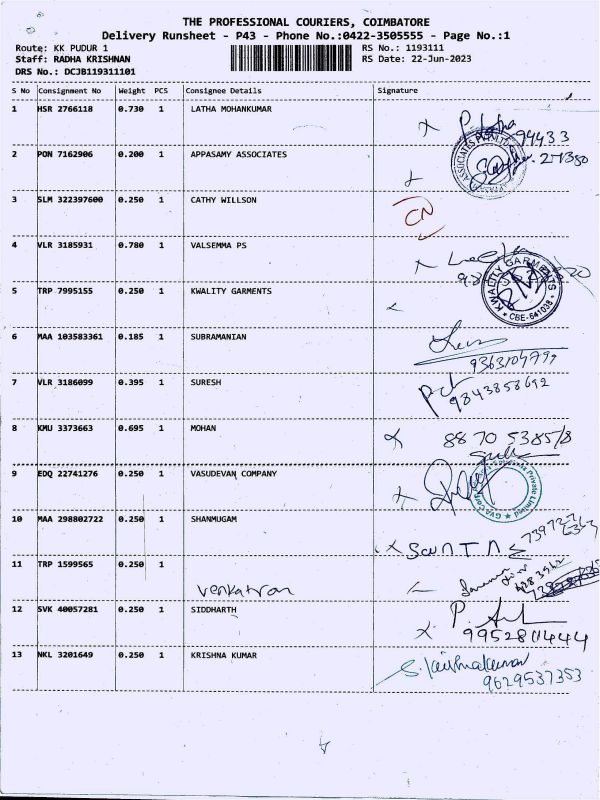 THE PROFESSIONAL COURIERS, COIMBATORE
Delivery Runsheet - P43 - Phone No.:0422-3505555 - Page No.:1
Route: KK PUDUR 1 RS No.: 1193111
Staff: RADHA KRISHNAN RS Date: 22-Jun-2023
DRS No.: DCJB119311101
S No Consignment No Weight PCS Consignee Details Signature
1 HSR 2766118 0.730 1 LATHA MOHANKUMAR
P. Latha
94433
27380
2 PON 7162906 0.200 1 APPASAMY ASSOCIATES
3 SLM 322397600 0.250 1 CATHY WILLSON
CN
4 VLR 3185931 0.780 1 VALSEMMA PS
5 TRP 7995155 0.250 1 KWALITY GARMENTS
KWALITY GARMENTS
CBE-641038
6 MAA 103583361 0.185 1 SUBRAMANIAN
7 VLR 3186099 0.395 1 SURESH
9843858692
8 KMU 3373663 0.695 1 MOHAN
88 70 5385/8
9 EDQ 22741276 0.250 1 VASUDEVAN COMPANY
Private Limited
10 MAA 298802722 0.250 1 SHANMUGAM
11 TRP 1599565 0.250 1
Venkatran
12 SVK 40057281 0.250 1 SIDDHARTH
9952811444
13 NKL 3201649 0.250 1 KRISHNA KUMAR
S. Krishnakumar
9629537353